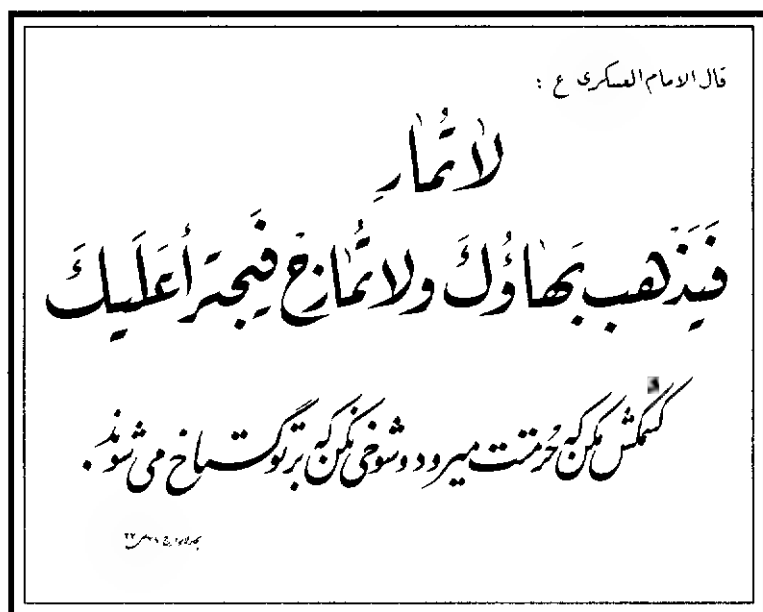 قال الامام العسکری ع :
لاتُمارِ
فَیَذْهب بَهاؤُكَ ولاتُمازِحْ فَیجترأعَلَیكَ
کشمکش مکن که حُرمتت میرود و شوخی مکن که بر تو گستاخ می شوند.